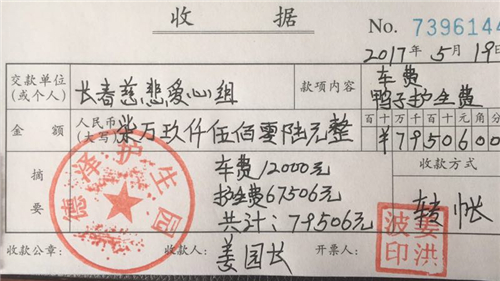 收 据
No. 7396144
2017年5月19日
交款单位(或个人) 长春慈悲爱心组 款项内容 车费 鸭子护生费
金额 人民币(大写) 柒万玖仟伍佰零陆元整 百十万千百十元角分 ¥7950600
摘要 车费12000元 收款方式
护生费67506元 转帐
共计:79506元
德泽护生园
收款公章: 收款人: 姜园长 开票人: 姜洪波印